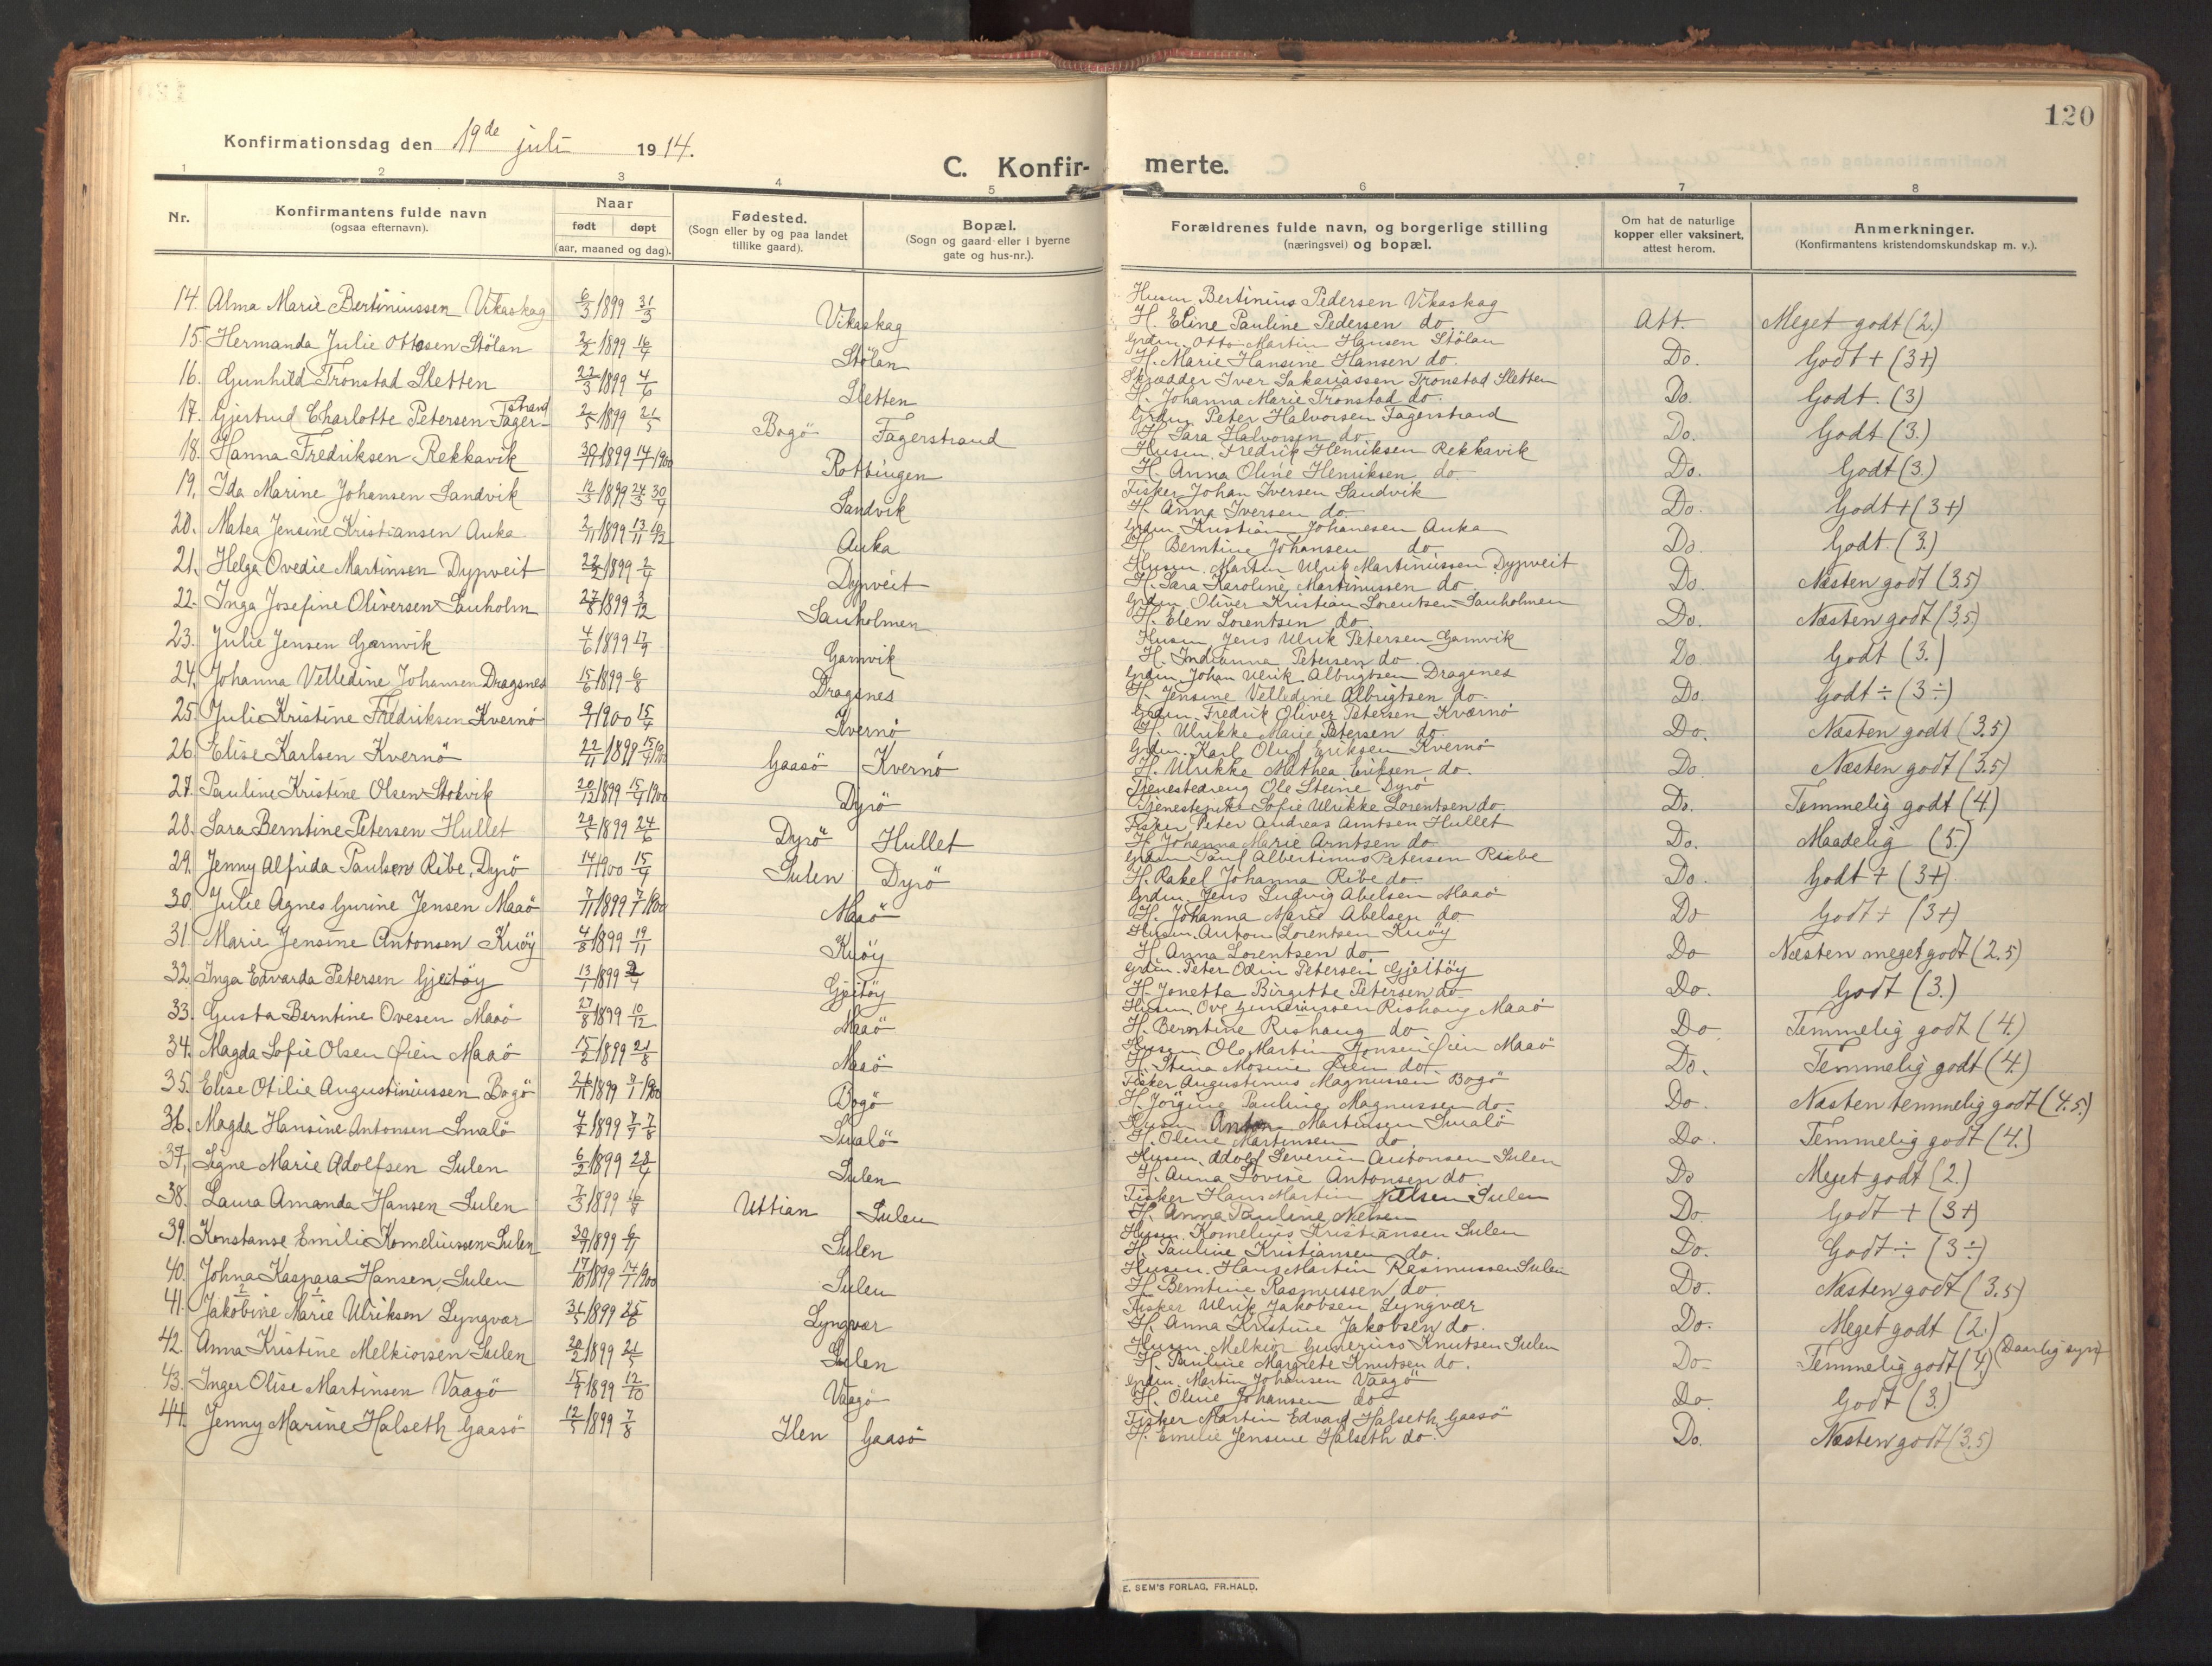 120
Konfirmationsdag den 19de juli 1914.
C. Konfir- merte.
1 2 3 4 5 6 7 8
Nr.
Konfirmantens fulde navn
(ogsaa efternavn).
Naar
født døpt
(aar, maaned og dag).
Fødested.
(Sogn eller by og paa landet
tillike gaard).
Bopæl.
(Sogn og gaard eller i byerne
gate og hus-nr.).
Forældrenes fulde navn, og borgerlige stilling
(næringsvei) og bopæl.
Om hat de naturlige
kopper eller vaksinert,
attest herom.
Anmerkninger.
(Konfirmantens kristendomskundskap m. v.).
14. Alma Marie Bertiniussen Vikaskag 6/3 1899 31/3 Vikaskag
Husm. Bertinius Pedersen Vikaskag
H. Eline Pauline Pedersen do. Att. Meget godt (2.)
15. Hermanda Julie Ottosen Stölan 2/2 1899 16/4 Stölan
Grdm. Otto Martin Hansen Stölan
H. Marie Hansine Hansen do. Do. Godt + (3+)
16. Gunhild Tronstad Sletten 22/3 1899 4/6 Sletten
Skrædder Iver Sakariassen Tronstad Sletten
H. Johanna Marie Tronstad do. Do. Godt. (3)
17. Gjertrud Charlotte Petersen Fager-strand 2/5 1899 21/5 Bogö Fagerstrand
Grdm. Peter Halvorsen Fagerstrand
H. Sara Halvorsen do. Do. Godt (3.)
18. Hanna Fredriksen Rekkavik 30/11 1899 14/1 1900 Rottingen
Husm. Fredrik Henriksen Rekkavik
H. Anna Oline Henriksen do. Do. Godt (3.)
19. Ida Marine Johansen Sandvik 12/3 1899 24/3 30/4 Sandvik
Fisker Johan Iversen Sandvik
H. Anna Iversen do. Do. Godt + (3+)
20. Matea Jensine Kristiansen Auka 2/11 1899 13/11 10/12 Auka
Grdm. Kristian Johanesen Auka
H. Berntine Johansen do. Do. Godt. (3.)
21. Helga Ovedie Martinsen Dypveit 22/2 1899 2/4 Dypveit
Husm. Martin Ulrik Martinussen Dypveit
H. Sara Karoline Martinussen do. Do. Næsten godt (3.5)
22. Inga Josefine Oliversen Sauholm 27/8 1899 3/12 Sauholmen
Grdm. Oliver Kristian Lorentsen Sauholmen
H. Elen Lorentsen do. Do. Næsten godt (3.5)
23. Julie Jensen Gamvik 4/6 1899 17/9 Gamvik
Husm. Jens Ulrik Petersen Gamvik
H. Indianna Petersen do. Do. Godt (3.)
24. Johanna Velledine Johansen Dragsnes 15/6 1899 6/8 Dragsnes
Grdm. Johan Ulrik Albrigtsen Dragsnes
H. Jensine Velledine Albrigtsen do. Do. Godt ÷ (3÷)
25. Juli Kristine Fredriksen Kvernö 9/1 1900 15/4 Kvernö
Grdm. Fredrik Oliver Petersen Kværnö
H. Ulrikke Marie Petersen do. Do. Næsten godt (3.5)
26. Elise Karlsen Kvernö 22/11 1899 15/4 1900 Gaasö Kvernö
Grdm. Karl Oluf Eriksen Kvernö
H. Ulrikke Mathea Eriksen do. Do. Næsten godt (3.5)
27. Pauline Kristine Olsen Stokvik 20/12 1899 15/4 1900 Dyrö
Tjenestedreng Ole Steine Dyrö
Tjenestepike Sofie Ulrikke Lorentsen do. Do. Temmelig godt (4.)
28. Sara Berntine Petersen Hullet 29/5 1899 24/6 Dyrö Hullet
Fisker Peter Andreas Arntsen Hullet
H. Johanna Marie Arntsen do. Do. Maadelig (5.)
29. Jenny Alfrida Paulsen Ribe, Dyrö 14/1 1900 15/4 Sulen Dyrö
Grdm. Paul Albertinus Petersen Riebe
H. Rakel Johanna Ribe do. Do. Godt + (3+)
30. Julie Agnes Gurine Jensen Maaö 7/11 1899 7/1 1900 Maaö
Grdm. Jens Ludvig Abelsen Maaö
H. Johanna Marie Abelsen do. Do Godt + (3+)
31. Marie Jensine Antonsen Kuöy 4/8 1899 19/11 Kuöy
Husm. Anton Lorentsen Kuöy
H. Anna Lorentsen do. Do Næsten meget godt (2.5)
32. Inga Edvarda Petersen Gjeitöy 13/1 1899 2/4 Gjeitöy
Grdm. Peter Odin Petersen Gjeitöy
H. Jonetta Birgitte Petersen do. Do. Godt (3.)
33. Gusta Berntine Ovesen Maaö 27/8 1899 10/12 Maaö
Husm. Ove Guneriussen Rishaug Maaö
H. Berntine Rishaug do. Do Temmelig godt (4.)
34. Magda Sofie Olsen Öien Maaö 15/2 1899 21/8 Maaö
Husm. Ole Martin Jonsen Öien Maaö
H. Stina Mosine Öien do. Do. Temmelig godt (4.)
35. Elise Otilie Augustiniussen Bogö 26/11 1899 7/1 1900 Bogö
Fisker Augustinus Magnussen Bogö
H. Jörgine Pauline Magnussen do. Do. Næsten temmelig godt (4.5.)
36. Magda Hansine Antonsen Smalö 4/2 1899 7/8 Smalö
Husm. Anton Martinsen Smalö
H. Oline Martinsen do. Do. Temmelig godt (4.)
37. Signe Marie Adolfsen Sulen 6/2 1899 28/4 Sulen
Husm. Adolf Severin Antonsen Sulen
H. Anna Lovise Antonsen do. Do Meget godt (2.)
38. Laura Amanda Hansen Sulen 7/3 1899 16/4 Uttian Sulen
Fisker Hans Martin Nilsen Sulen
H. Anna Pauline Nilsen Do Godt + (3+)
39. Konstanse Emilie Korneliussen Sulen 30/9 1899 6/11 Sulen
Husm. Kornelius Kristiansen Sulen
H. Pauline Kristiansen do. Do. Godt ÷ (3÷)
40. Johna Kaspara Hansen, Sulen 17/10 1899 14/1 1900 Sulen
Husm. Hans Martin Rasmussen Sulen
H. Berntine Rasmussen do. Do. Næsten godt (3.5)
41. Jakobine Marie Ulriksen Lyngvær 31/5 1899 25/6 Lyngvær
Fisker Ulrik Jakobsen Lyngvær
H. Anna Kristine Jakobsen do. Do. Meget godt (2.)
42. Anna Kristine Melkiorsen Sulen 20/2 1899 21/5 Sulen
Husm. Melkior Gunerius Knutsen Sulen
H. Pauline Margrete Knutsen do. Do Temmelig godt (4.) (Daarlig syn)
43. Inger Olise Martinsen Vaagö 15/9 1899 12/10 Vaagö
Grdm. Martin Johansen Vaagö
H. Oline Johansen do. Do. Godt (3.)
44. Jenny Marine Halseth Gaasö 12/5 1899 7/8 Ilen Gaasö
Fisker Martin Edvard Halseth Gaasö
H. Emilie Jensine Halseth do. Do. Næsten godt (3.5)
E. SEM'S FORLAG, FR.HALD.